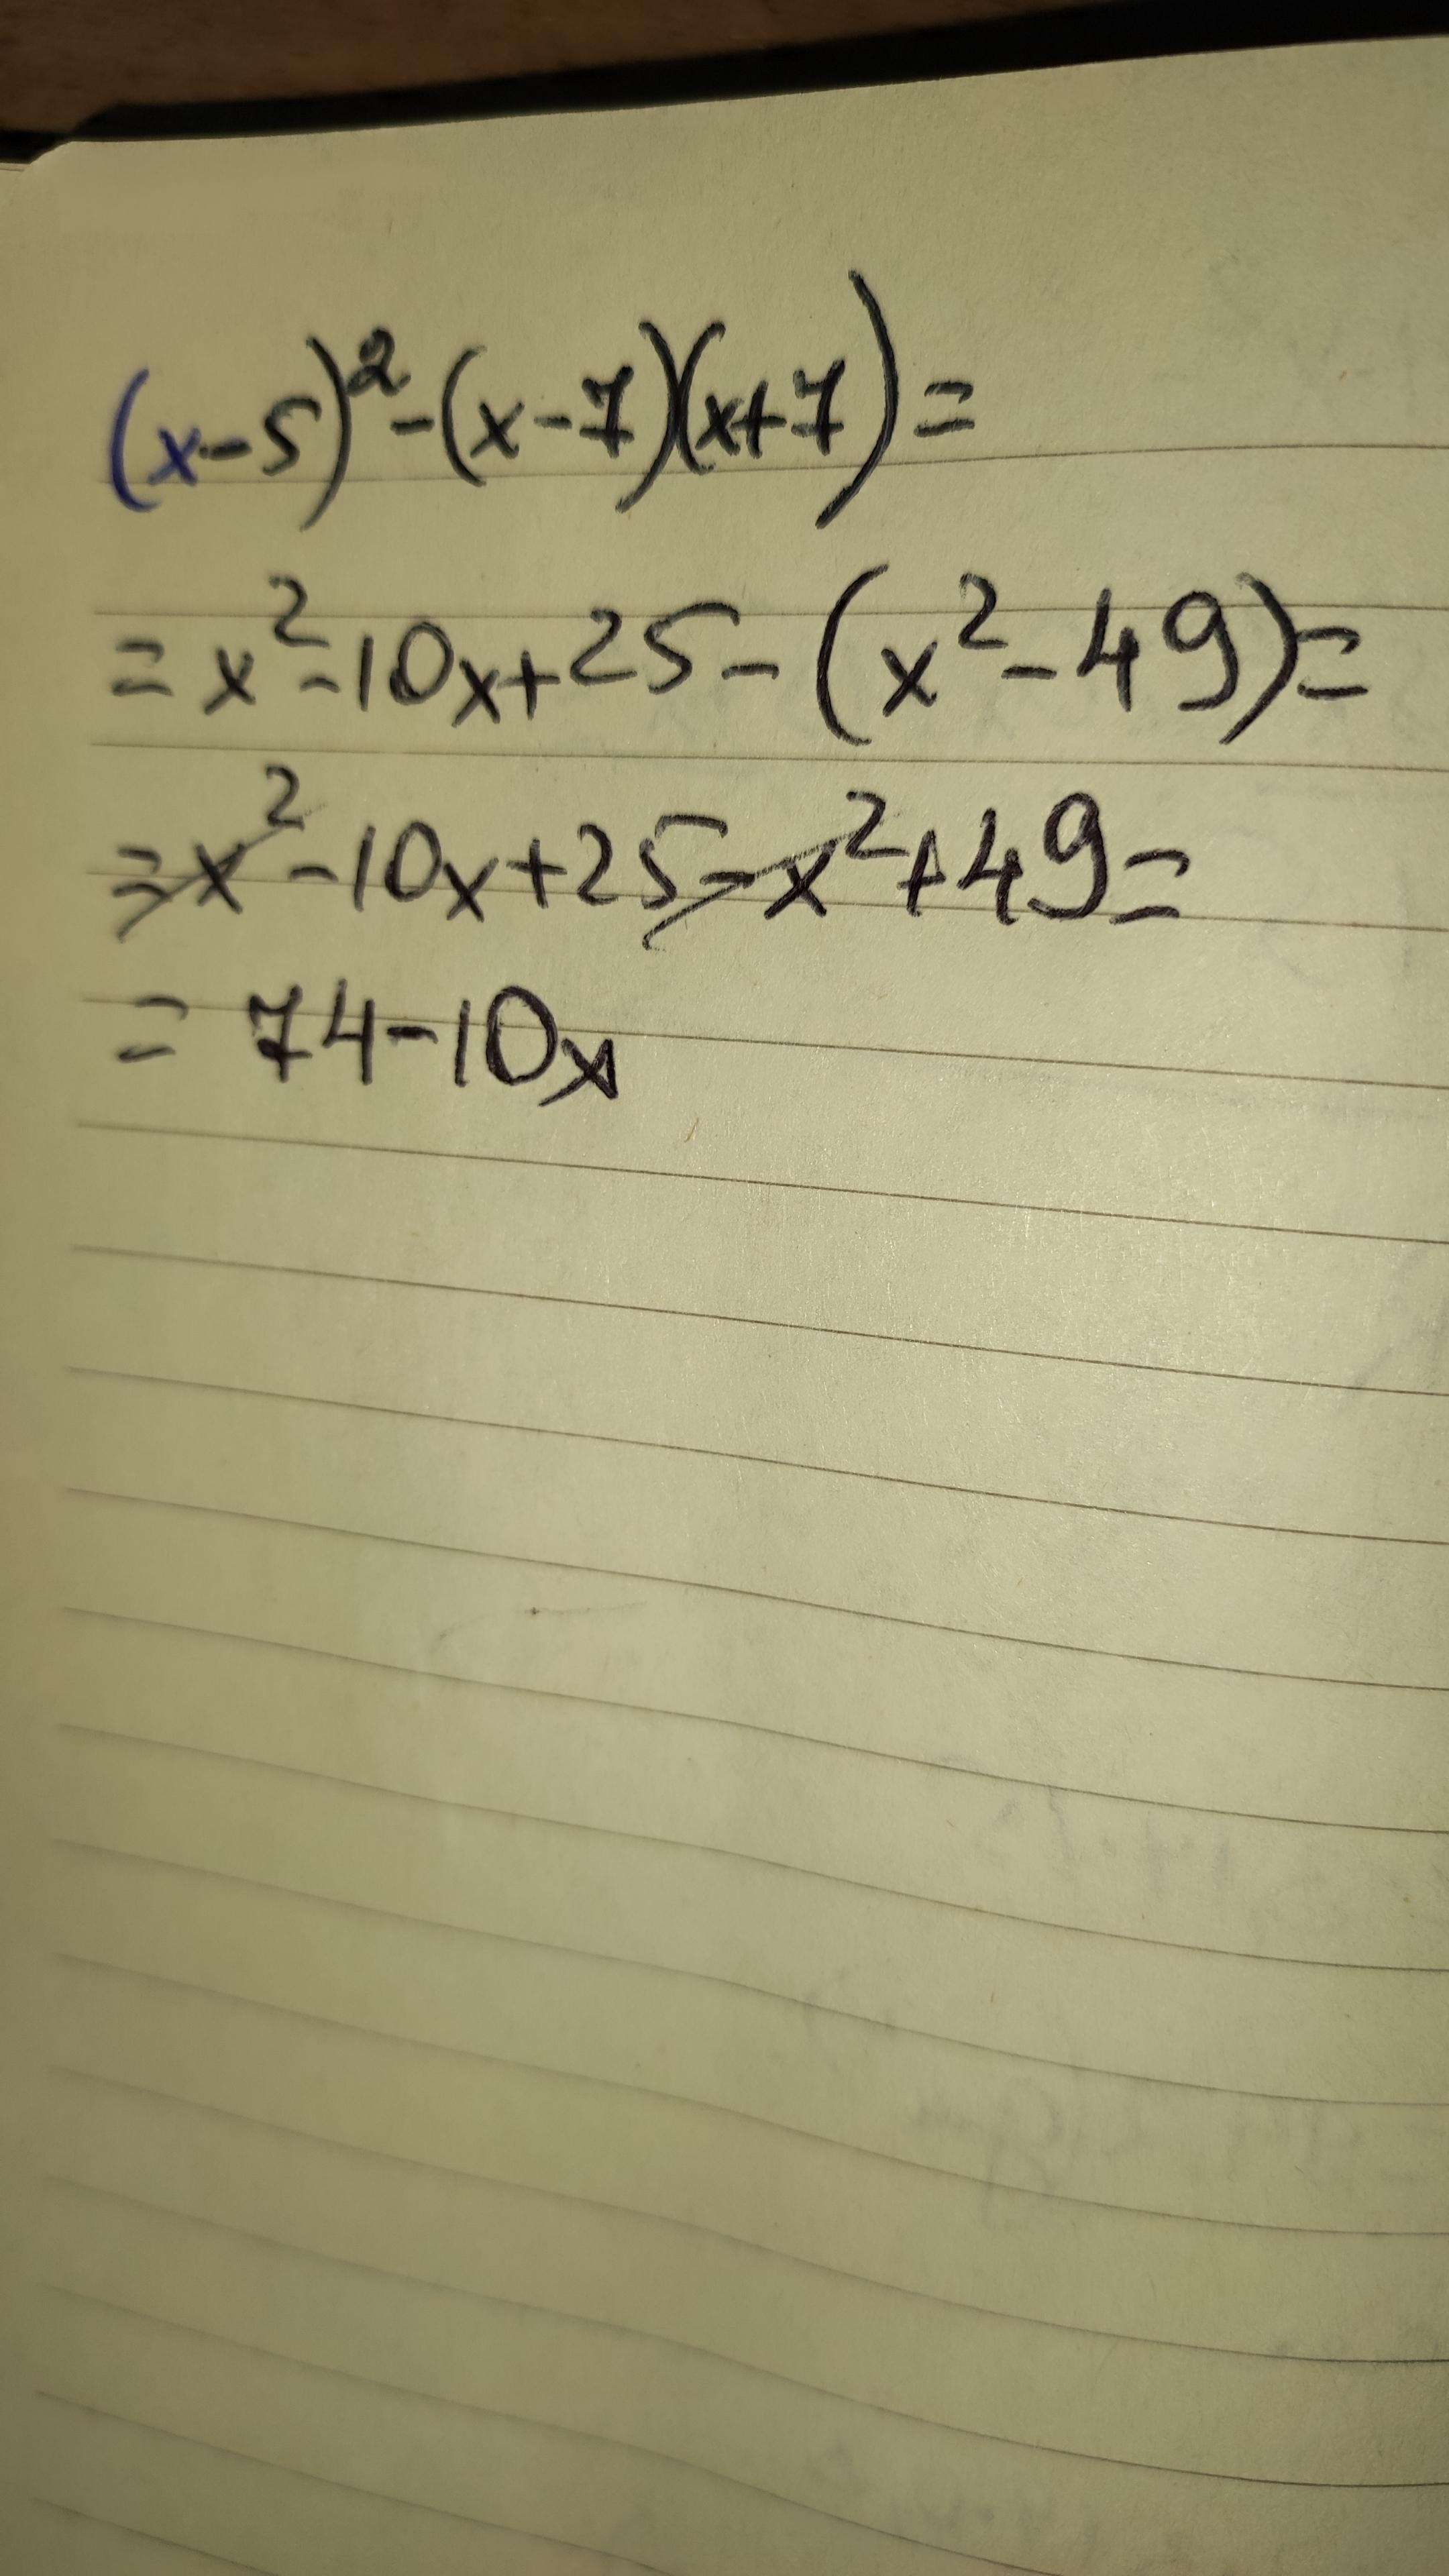 (x-5)²-(x-7)(x+7)=
=x²-10x+25-(x²-49)=
=x²-10x+25-x²+49=
=74-10x